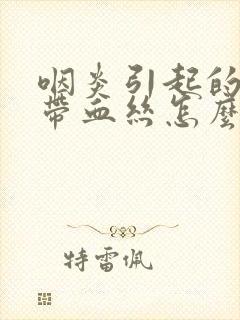 咽炎引起的
带血丝怎麽
特雷佩